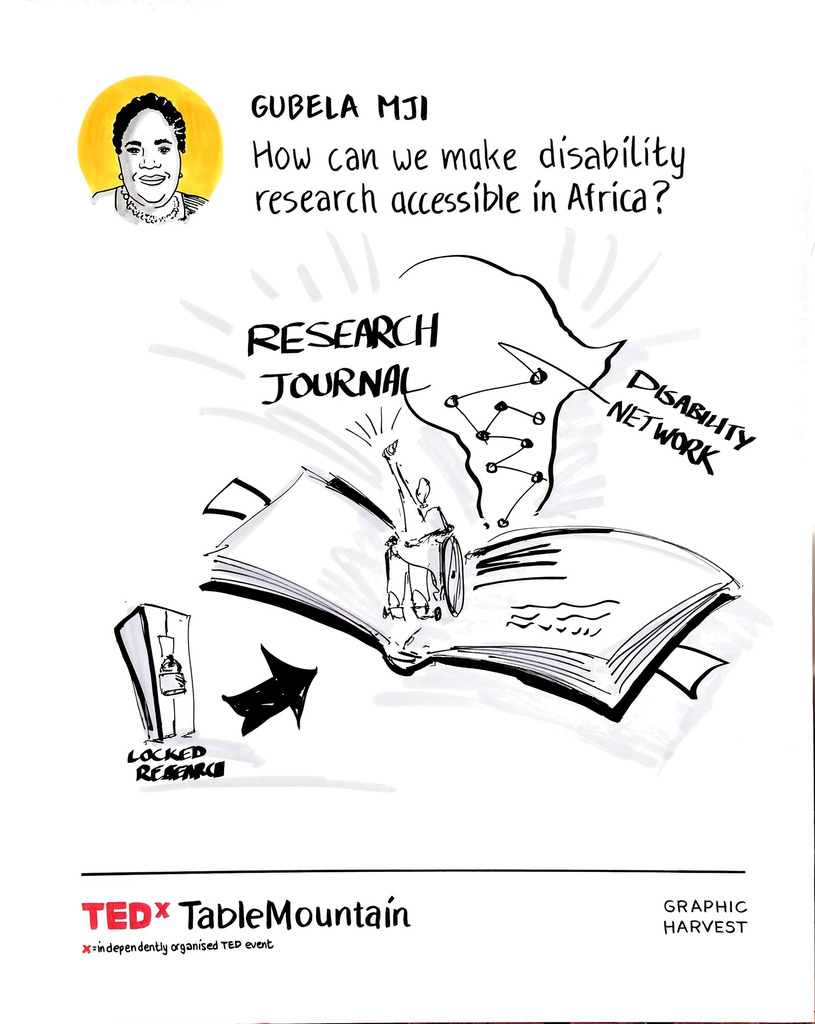 GUBELA MJI
How can we make disability
research accessible in Africa?
RESEARCH
JOURNAL
DISABILITY
NETWORK
LOCKED
RESEARCH
TEDx TableMountain
x=independently organised TED event
GRAPHIC
HARVEST